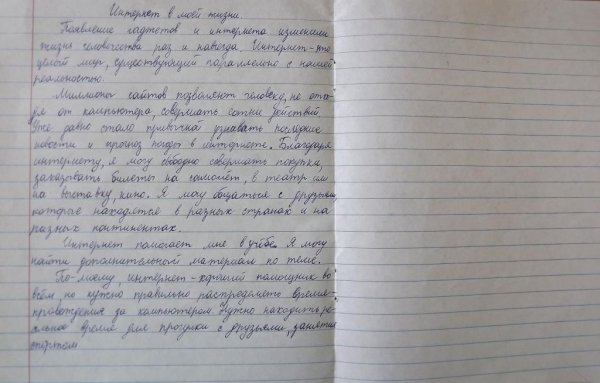 Интернет в моей жизни.
Появление гаджетов и интернета изменили
жизнь человечества раз и навсегда. Интернет-это
целый мир, существующий параллельно с нашей
реальностью.
Миллионы сайтов позволяют человеку, не отхо-
дя от компьютера, совершать сотни действий.
Уже давно стало привычкой узнавать последние
новости и прогноз погоды в интернете. Благодаря
интернету, я могу свободно совершать покупки,
заказывать билеты на самолёт, в театр или
на выставку, кино. Я могу общаться с друзьями,
которые находятся в разных странах и на
разных континентах.
Интернет помогает мне в учёбе. Я могу
найти дополнительный материал по теме.
По-моему, интернет-хороший помощник во
всём, но нужно правильно распределять время-
провождения за компьютером. Нужно находить ре-
альное время для прогулки с друзьями, занятия
спортом.